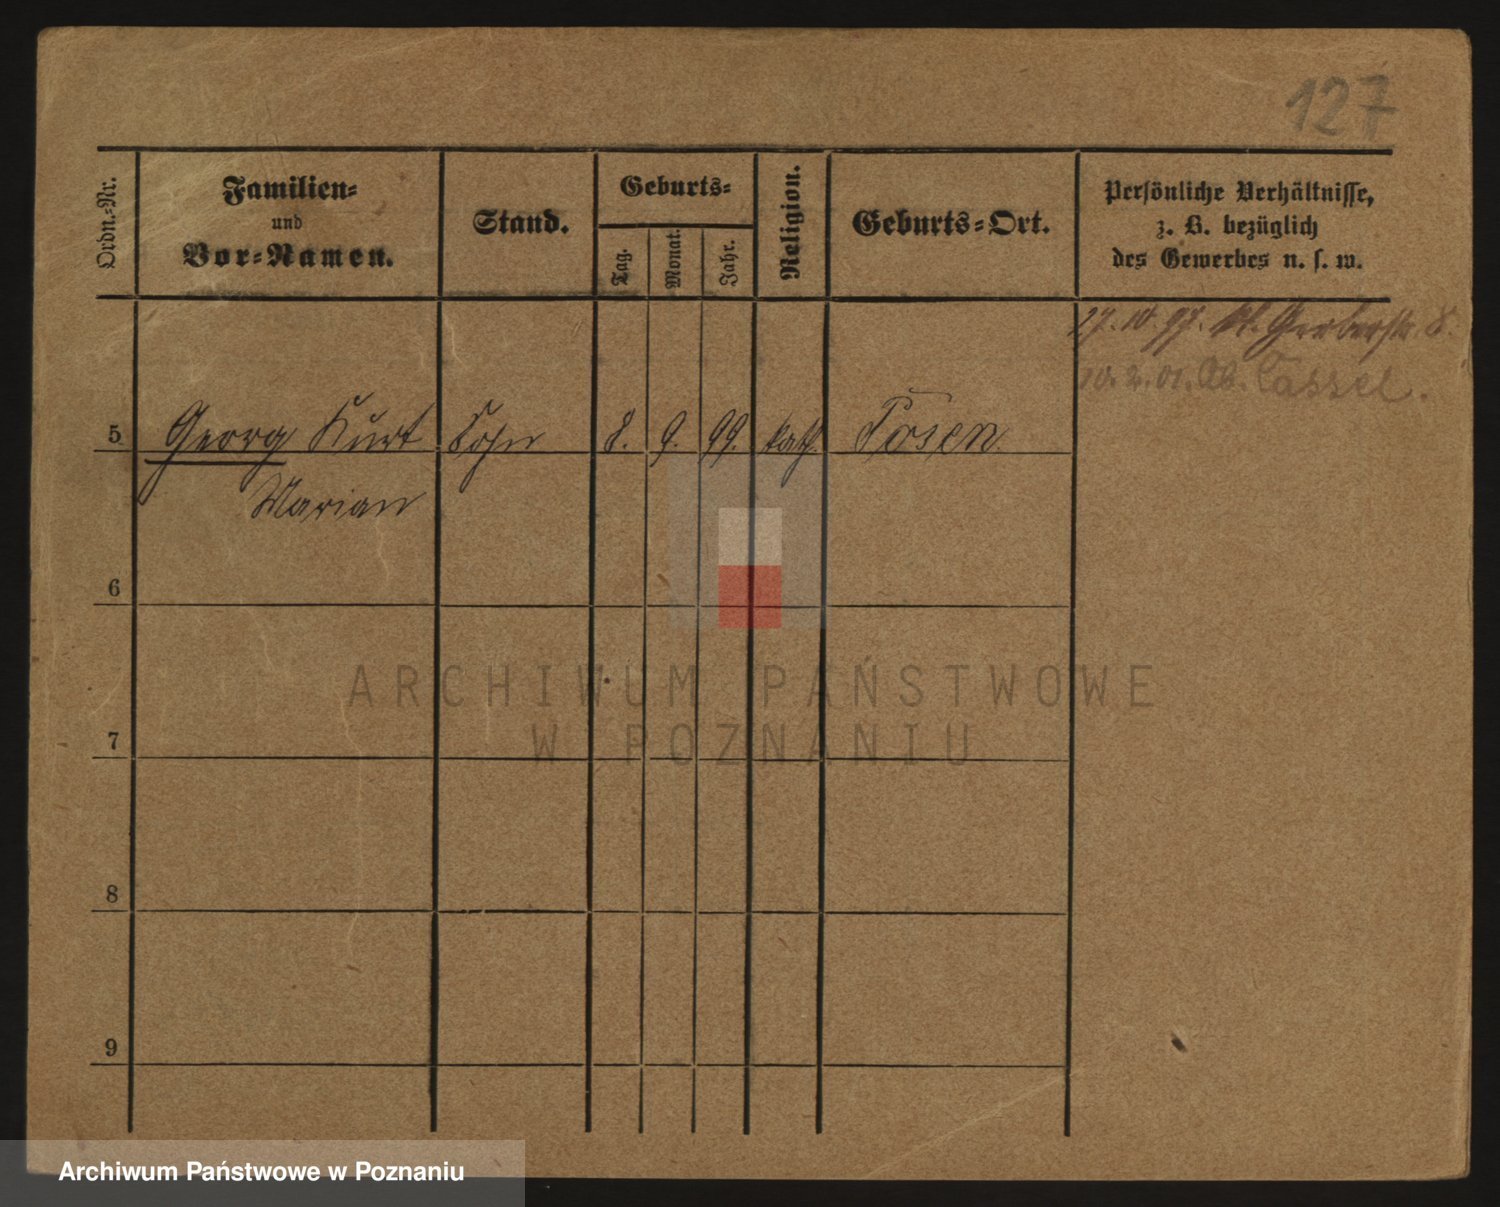 127
Ordn.-Nr.
Familien-
und
Vor-Namen.
Stand.
Geburts-
Tag.
Monat.
Jahr.
Religion.
Geburts-Ort.
Persönliche Verhältnisse,
z. B. bezüglich
des Gewerbes u. s. w.
27. 10. 97. kl. Gerberstr. 8.
10. 2. 01. Ab. Cassel.
5 Georg Kurt Sohn 8. 9. 99. kath. Posen.
Marian
6
7
8
9
ARCHIWUM PAŃSTWOWE
W POZNANIU
Archiwum Państwowe w Poznaniu